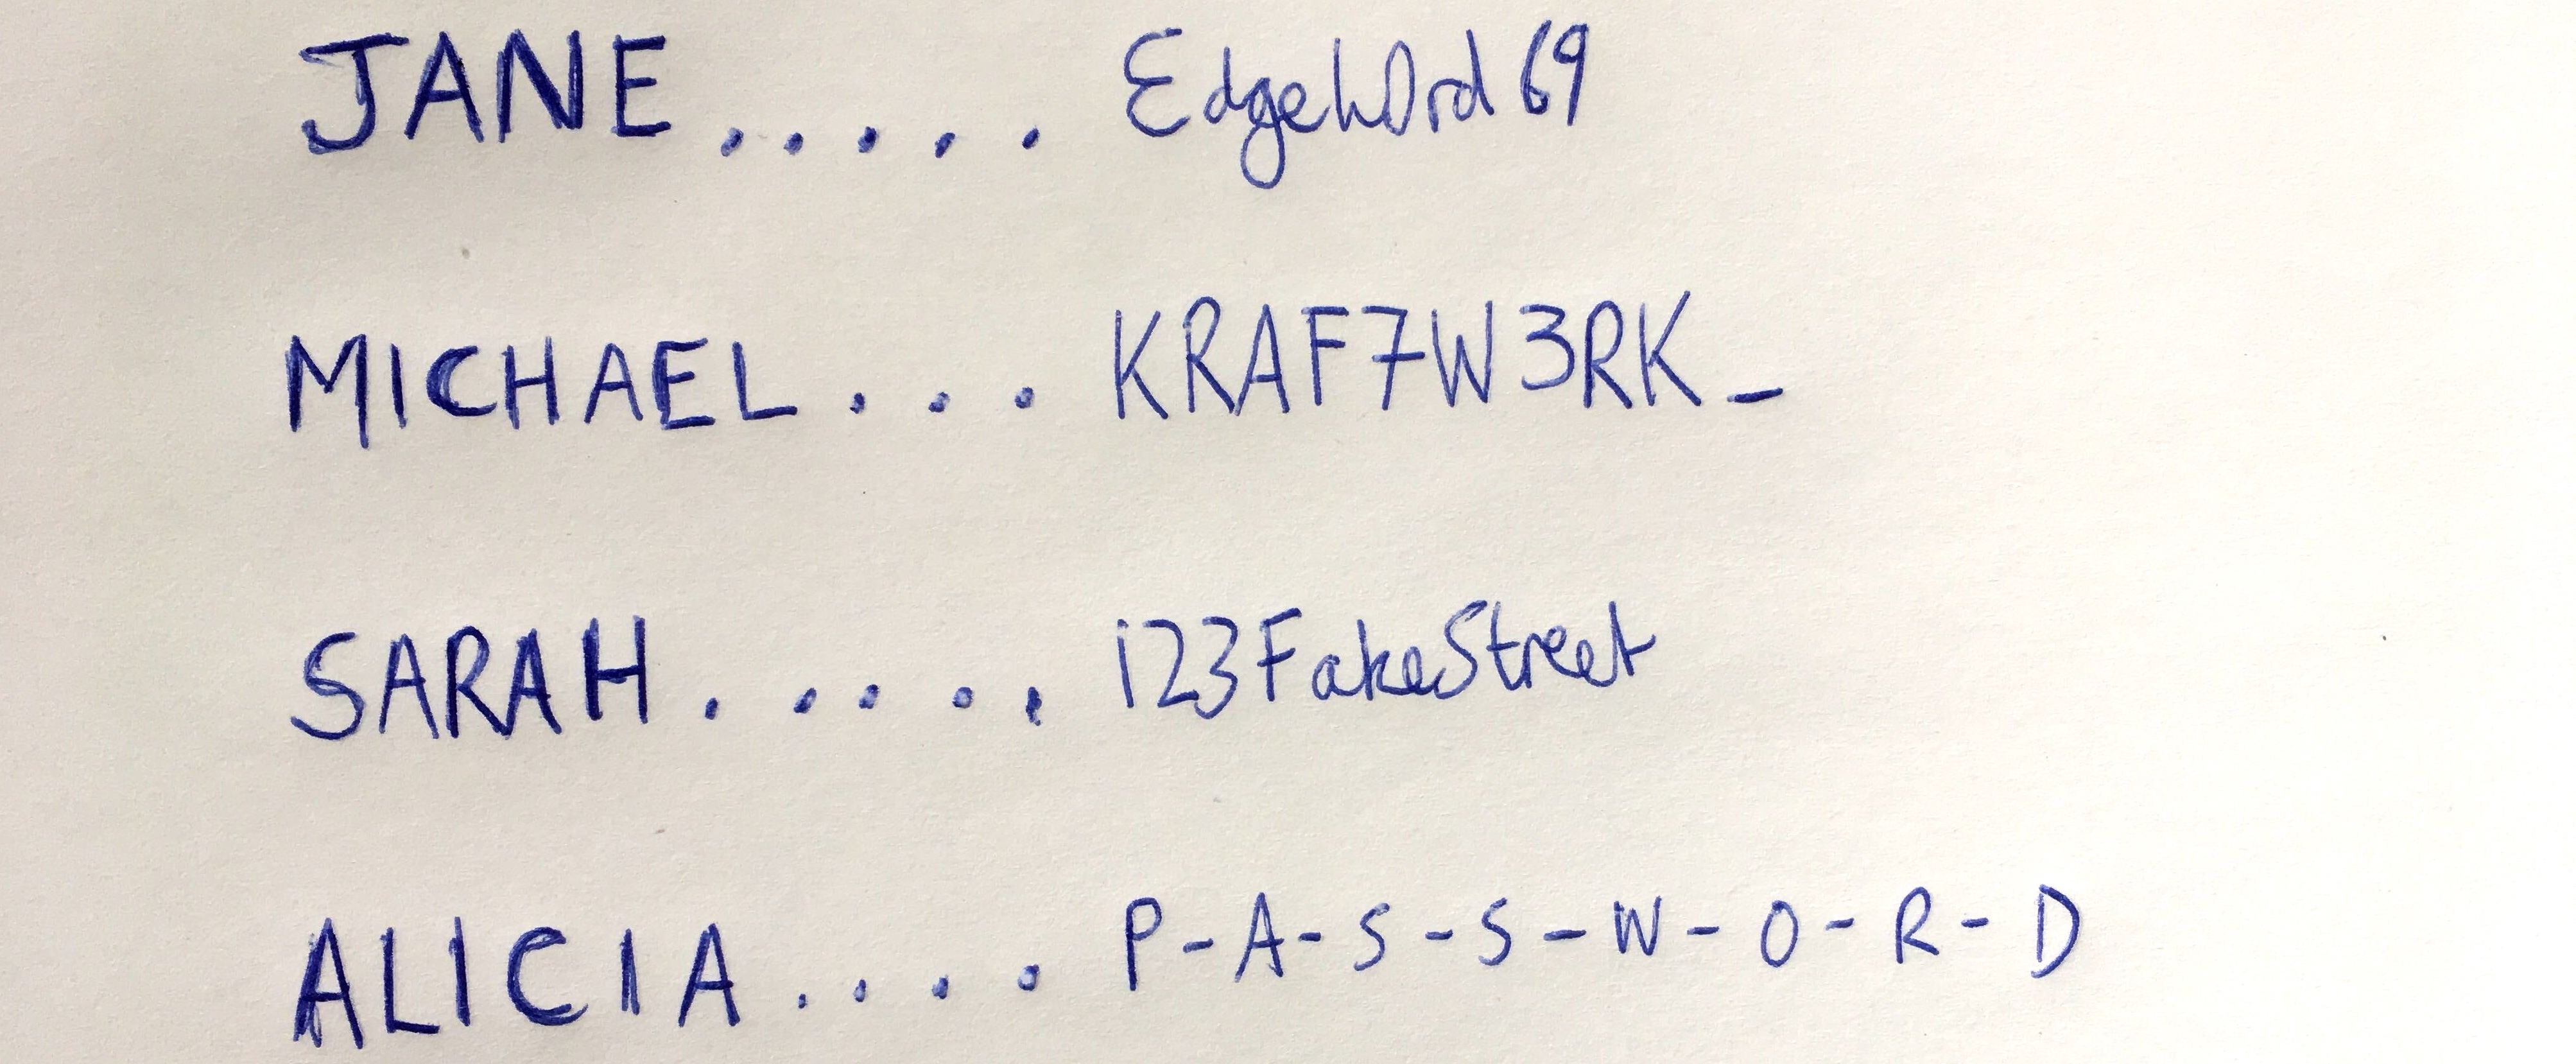 JANE..... EdgeW0rd69
MICHAEL... KRAF7W3RK_
SARAH..... i23FakeStreet
ALICIA.... P-A-S-S-W-O-R-D